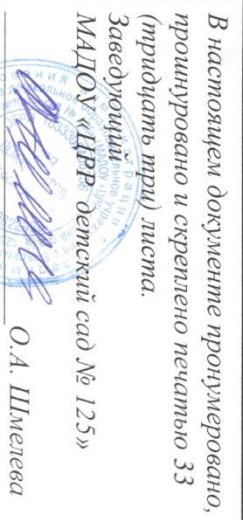 В настоящем документе пронумеровано,
прошнуровано и скреплено печатью 33
(тридцать три) листа.
Заведующий
МАДОУ «ЦРР детский сад № 125»
О.А. Шмелева